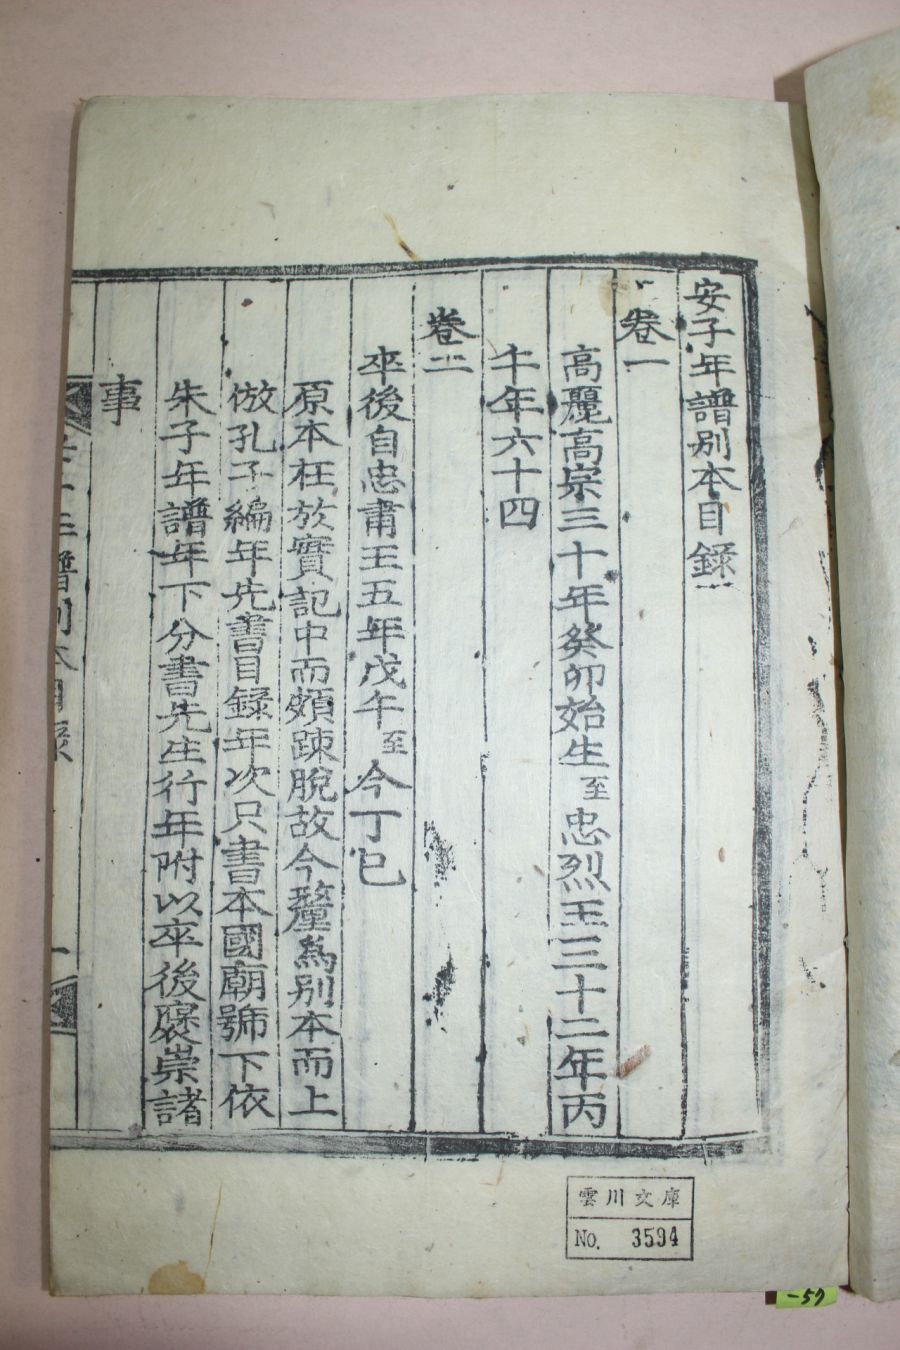 安子年譜别本目錄
卷一
高麗高宗三十年癸卯始生至忠烈王三十二年丙
午年六十四
卷二
卒後自忠肅王五年戊午至今丁巳
原本在於實記中而頗踈脫故今釐爲别本而上
倣孔子編年先書目錄年次只書本國廟號下依
朱子年譜年下分書先生行年附以卒後褒崇諸
事
雲川文庫
No. 3594
-59